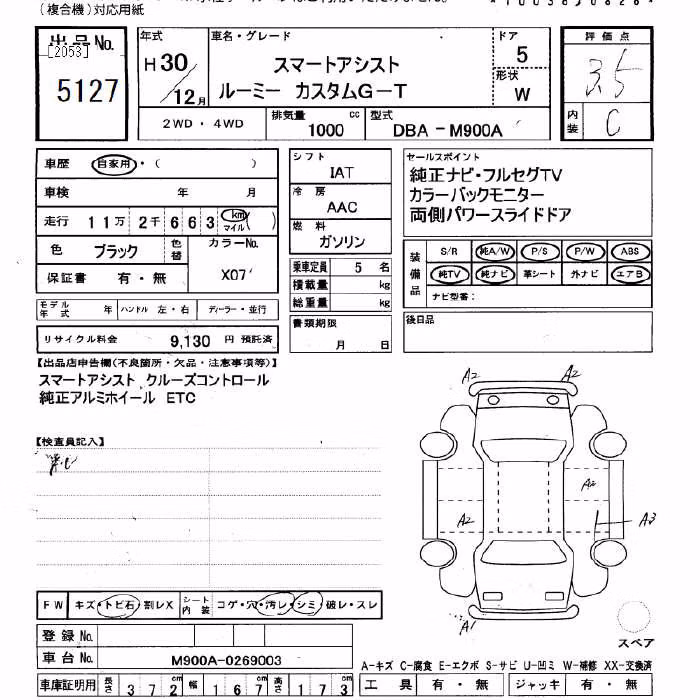 (複合機)対応用紙
出品No.
[2053]
5127
年式
H30/12月
車名・グレード
スマートアシスト
ルーミー カスタムG－T
ドア
5
形状
W
2WD ・ 4WD
排気量
1000 cc
型式
DBA－M900A
評価点
3.5
内装
C
車歴 自家用・( )
車検 年 月
走行 11万2千663 km(マイル)
色 ブラック 色替 カラーNo.
X07
保証書 有・無
モデル年式 年 ハンドル 左・右 ディーラー・並行
リサイクル料金 9,130 円 預託済
シフト
IAT
冷房
AAC
燃料
ガソリン
乗車定員 5 名
積載量 kg
総重量 kg
書類期限
月 日
セールスポイント
純正ナビ・フルセグTV
カラーバックモニター
両側パワースライドドア
装備品
S/R 純A/W P/S P/W ABS
純TV 純ナビ 革シート 外ナビ エアB
ナビ型番:
後日品
【出品店申告欄(不良箇所・欠品・注意事項等)】
スマートアシスト クルーズコントロール
純正アルミホイール ETC
【検査員記入】
A2 A2
A2
A2
A3
A1
スペア
FW キズ・トビ石・割レX シート内装 コゲ・穴・汚レ・シミ・破レ・スレ
登録No.
車台No. M900A-0269003
車庫証明用 長さ 372cm 幅 167cm 高さ 173cm
A－キズ C－腐食 E－エクボ S－サビ U－凹ミ W－補修 XX－交換済
工具 有・無 ジャッキ 有・無